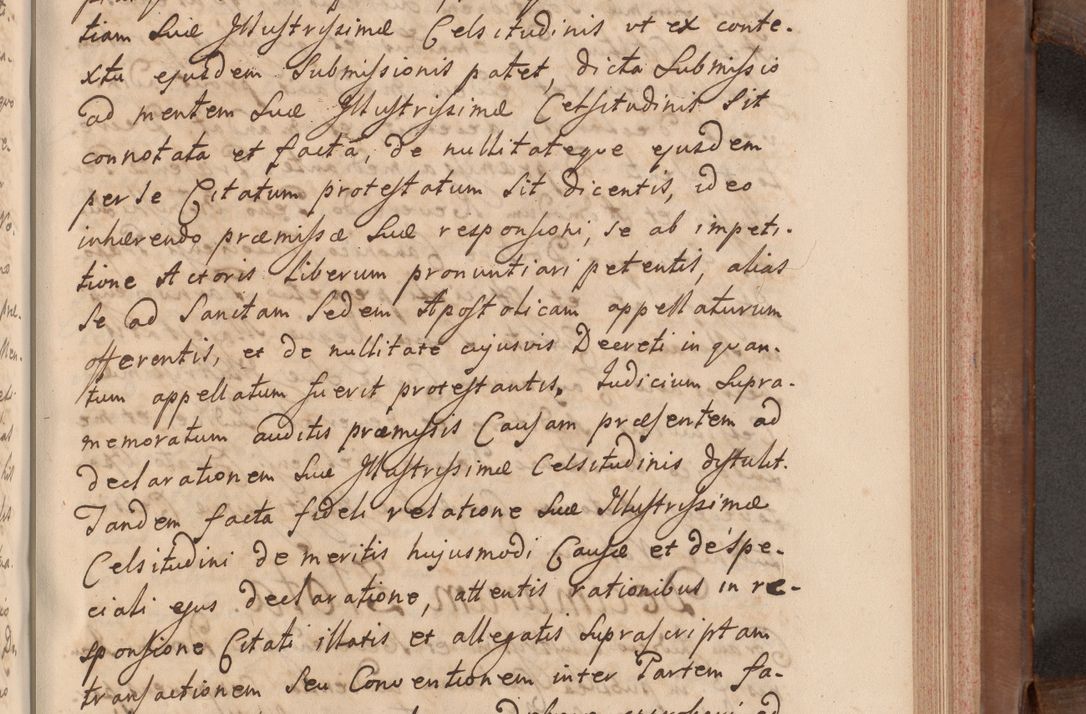 tiam Suæ Illustrissimæ Celsitudinis ut ex conte-
xtu ejusdem Submissionis patet, dicta Submissio
ad mentem Suæ Illustrissimæ Celsitudinis Sit
connotata et facta, de nullitateque ejusdem
per Se Citatum protestatum Sit dicentis, ideo
inhærendo præmissæ Suæ responsioni, Se ab impeti-
tione Actoris Liberum pronuntiari petentis, alias
Se ad Sanctam Sedem Apostolicam appellaturum
offerentis, et de nullitate cujusvis Decreti in quan-
tum appellatum fuerit protestantis. Iudicium Supra-
memoratum auditis præmissis Causam præsentem ad
declarationem Suæ Illustrissimæ Celsitudinis distulit.
Tandem facta fideli relatione Suæ Illustrissimæ
Celsitudini de meritis hujusmodi Causæ et de Spe-
ciali ejus declaratione, attentis rationibus in re-
sponsione Citati illatis et allegatis Suprascriptam
transactionem Seu Conventionem inter Partem fa-